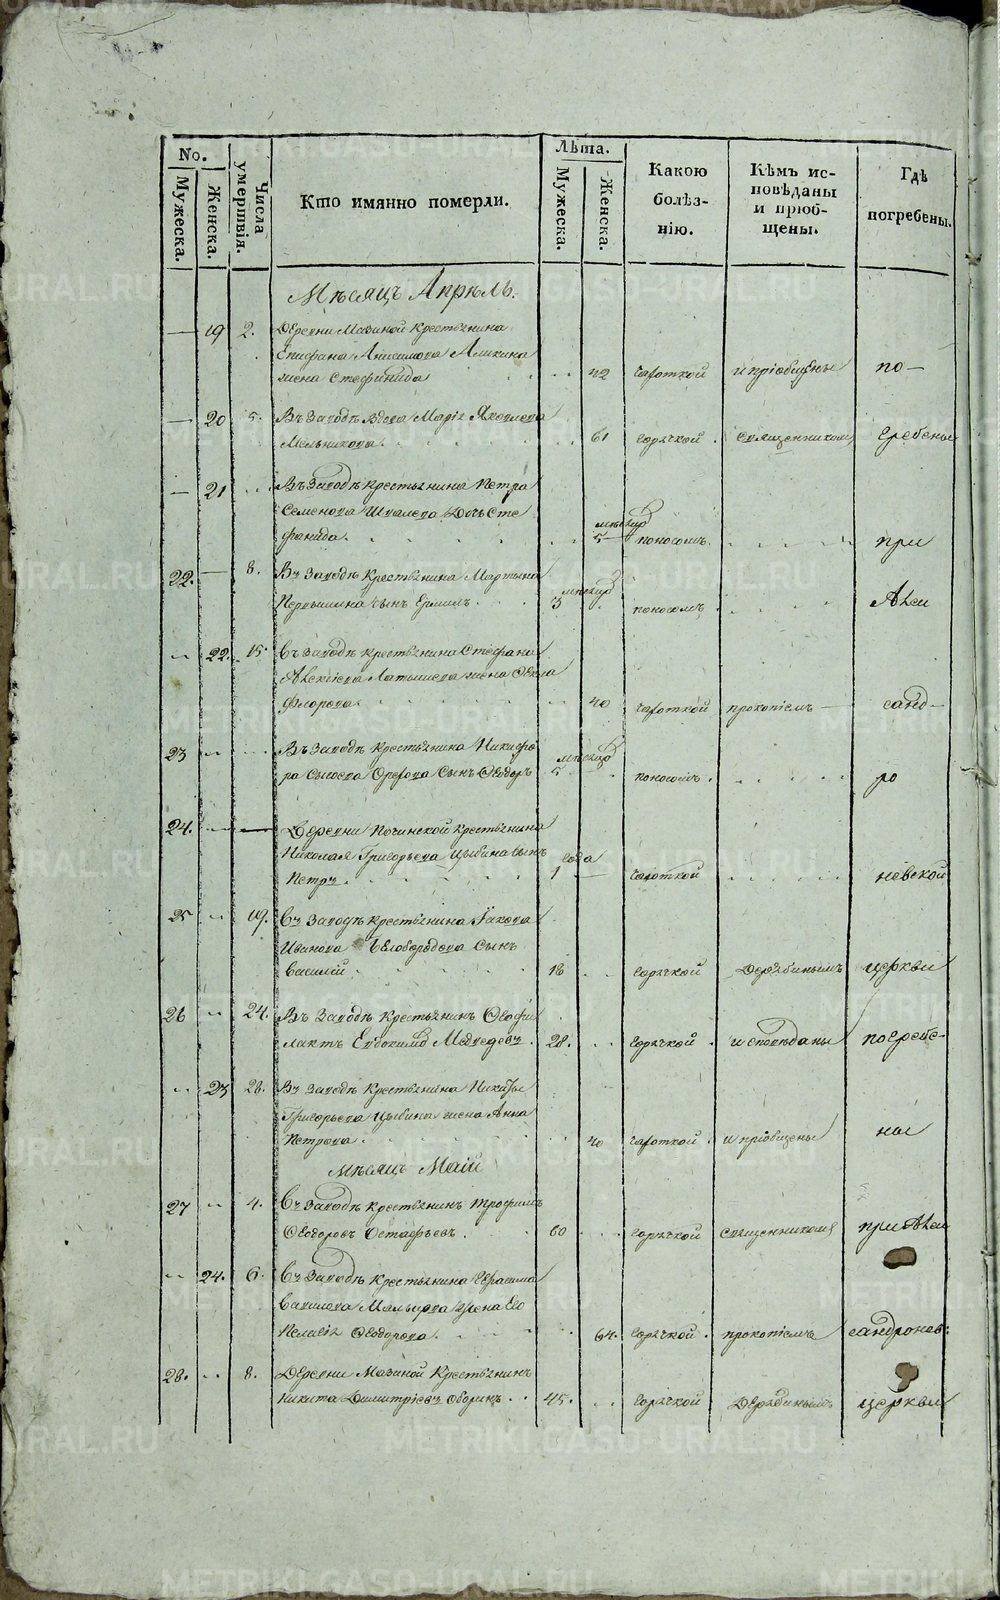 No. Лѣта.
Мужеска. Женска. Числа умертвія. Кто имянно померли. Мужеска. Женска. Какою болѣзнію. Кѣмъ исповѣданы и пріобщены. Гдѣ погребены.
Мѣсяцъ Апрѣль.
— 19 2. Деревни Мазиной крестьянина
Епифана Анисимова Аликина
жена Стефанида 42 чахоткой и пріобщены по—
— 20 5. Въ Заводѣ вдова Марія Яковлева
Мельникова. 61 горячкой. священникомъ гребены
— 21 Въ Заводѣ крестьянина Петра
Семенова Дочь Сте
фанида. мѣсяцовъ 5 поносомъ. при
22. — 8. Въ Заводѣ крестьянина Мартына
сынъ Ермилъ. 3 мѣсяцовъ поносомъ. Алек
22. 15. Въ Заводѣ крестьянина Стефана
Алексіева Латышева жена Фекла
Флорова. 40 чахоткой прокопіемъ — санд—
23 Въ Заводѣ крестьянина Никифо
ра Сысоева Орехова Сынъ Ѳеодоръ мѣсяцовъ 5 поносомъ. ро
24. — Деревни Починской крестьянина
Николая Григорьева Цыбина сынъ
Петръ. 1 года чахоткой невской
25 19. Въ Заводѣ крестьянина Іакова
Иванова Белобородова Сынъ
Василій 18 горячкой Дерябинымъ церкви
26 24. Въ Заводѣ крестьянинъ Ѳеофи
лактъ Евдокимовъ Медведевъ. 28. горячкой. исповѣданы погребе-
23 28. Въ Заводѣ крестьянина Никиты
Григорьева Цыбина жена Анна
Петрова. 40 чахоткой. и пріобщены ны
Мѣсяцъ Маій
27 4. Въ Заводѣ крестьянинъ Трофимъ
Ѳеодоровъ Остафьевъ. 60 горячкой священникомъ при Алек
24. 6. Въ Заводѣ крестьянина Герасима
Вавилова Мальцова жена Его
Пелагія Ѳеодорова. 64. горячкой. прокопіемъ сандронев:
28. 8. Деревни Мазиной Крестьянинъ
Никита Димитріевъ 45. горячкой Дерябинымъ церкви
METRIKI.GASO-URAL.RU